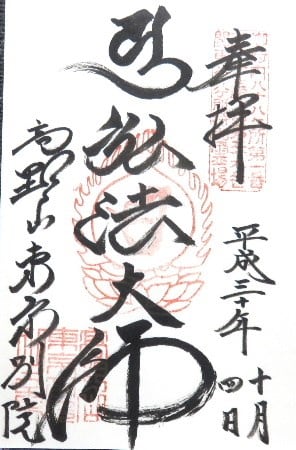 奉拝
平成三十年
十月
四日
弘法大師
高野山東京別院